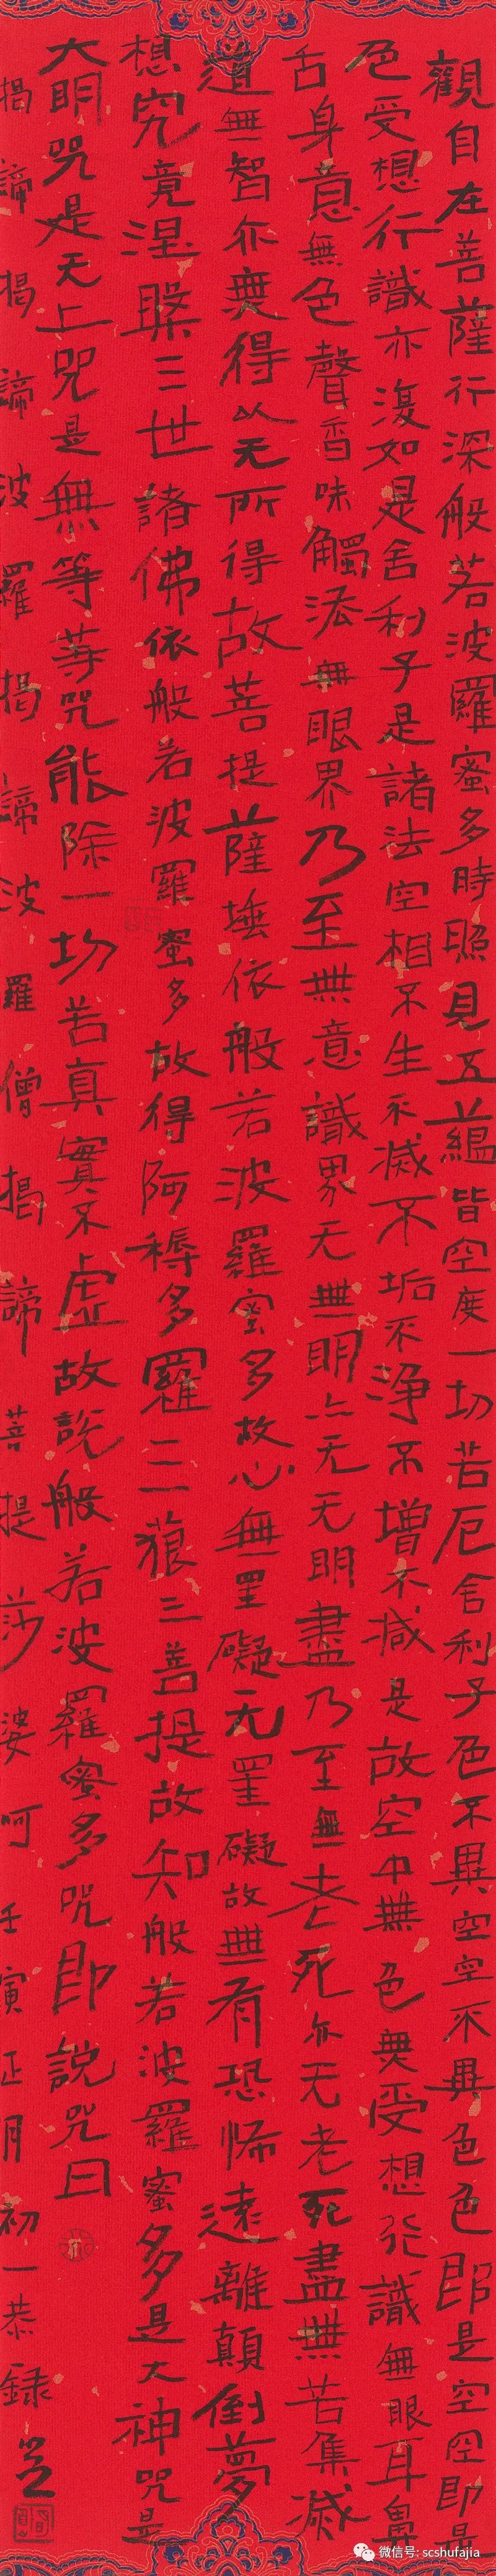 觀自在菩薩行深般若波羅蜜多時照見五蘊皆空度一切苦厄舍利子色不異空空不異色色即是空空即是
色受想行識亦復如是舍利子是諸法空相不生不滅不垢不淨不增不減是故空中無色無受想行識無眼耳鼻
舌身意無色聲香味觸法無眼界乃至無意識界无無明亦无无明盡乃至無老死亦无老死盡無苦集滅
道無智亦無得以无所得故菩提薩埵依般若波羅蜜多故心無罣礙无罣礙故無有恐怖遠離顛倒夢
想究竟涅槃三世諸佛依般若波羅蜜多故得阿耨多羅三藐三菩提故知般若波羅蜜多是大神咒是
大明咒是无上咒是無等等咒能除一切苦真實不虛故說般若波羅蜜多咒即說咒曰
揭諦揭諦波羅揭諦波羅僧揭諦菩提莎婆呵壬寅正月初一恭録
微信号: scshufajia